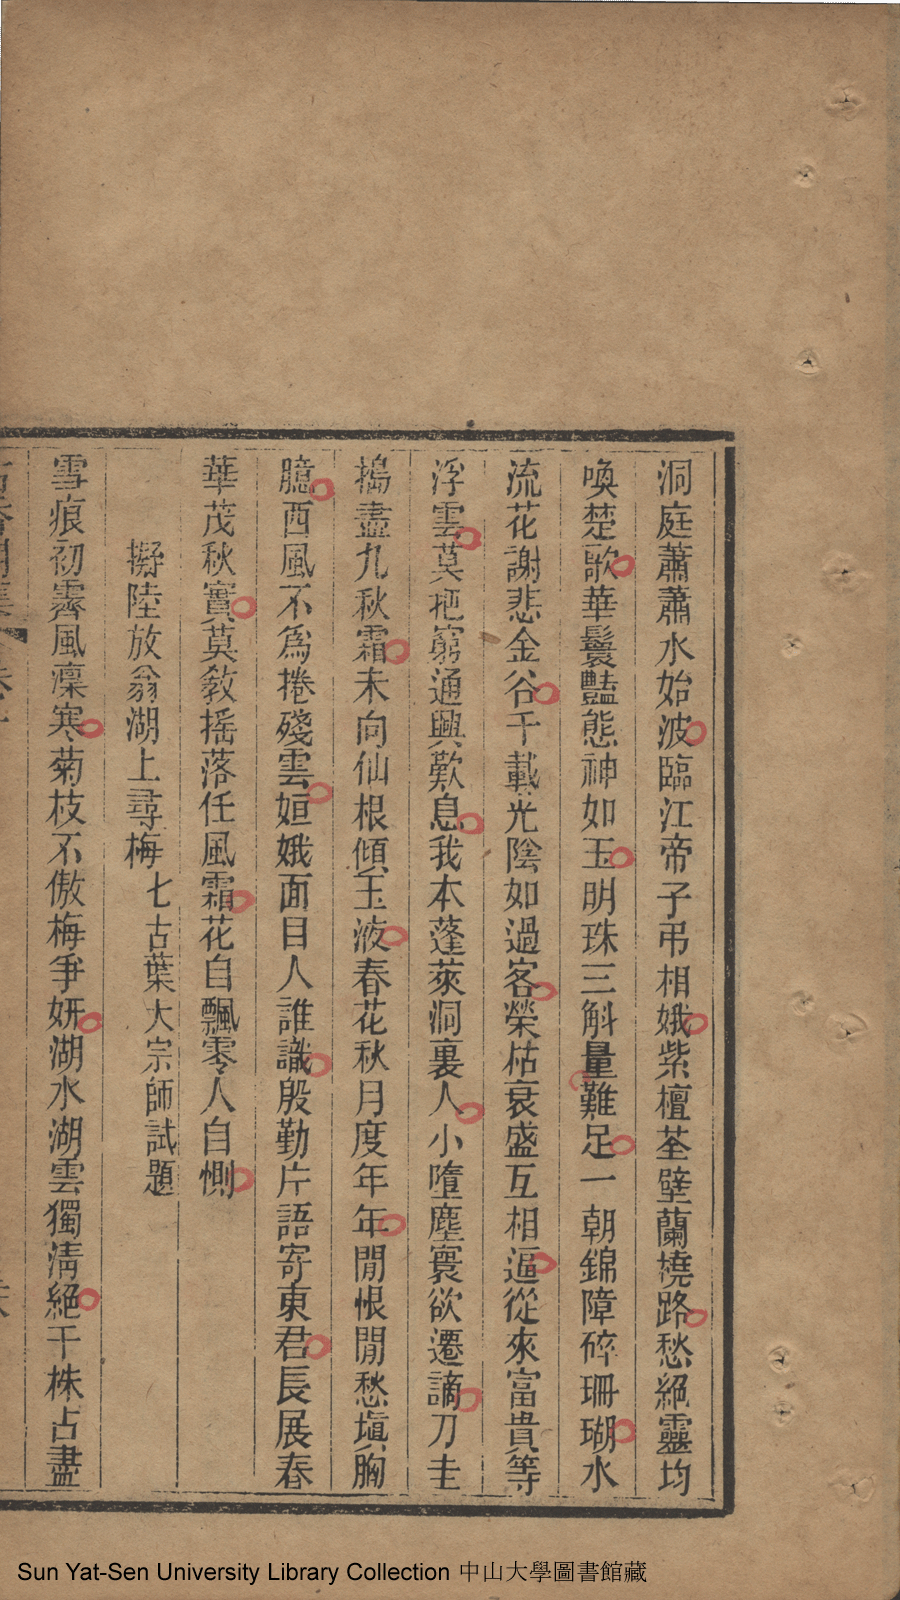 洞庭蕭蕭水始波臨江帝子弔相娥紫檀荃壁蘭橈路愁絕靈均
喚楚歌華鬘豔態神如玉明珠三斛量難足一朝錦障碎珊瑚水
流花謝悲金谷千載光陰如過客榮枯衰盛互相逼從來富貴等
浮雲莫把窮通興歎息我本蓬萊洞裏人小墮塵寰欲遷謫刀圭
搗盡九秋霜未向仙根傾玉液春花秋月度年年閒恨閒愁塡胸
臆西風不爲捲殘雲姮娥面目人誰識殷勤片語寄東君長展春
華茂秋實莫敎搖落任風霜花自飄零人自惻
擬陸放翁湖上尋梅七古葉大宗師試題
雪痕初霽風凜寒菊枝不傲梅爭妍湖水湖雲獨淸絕千株占盡
Sun Yat-Sen University Library Collection 中山大學圖書館藏